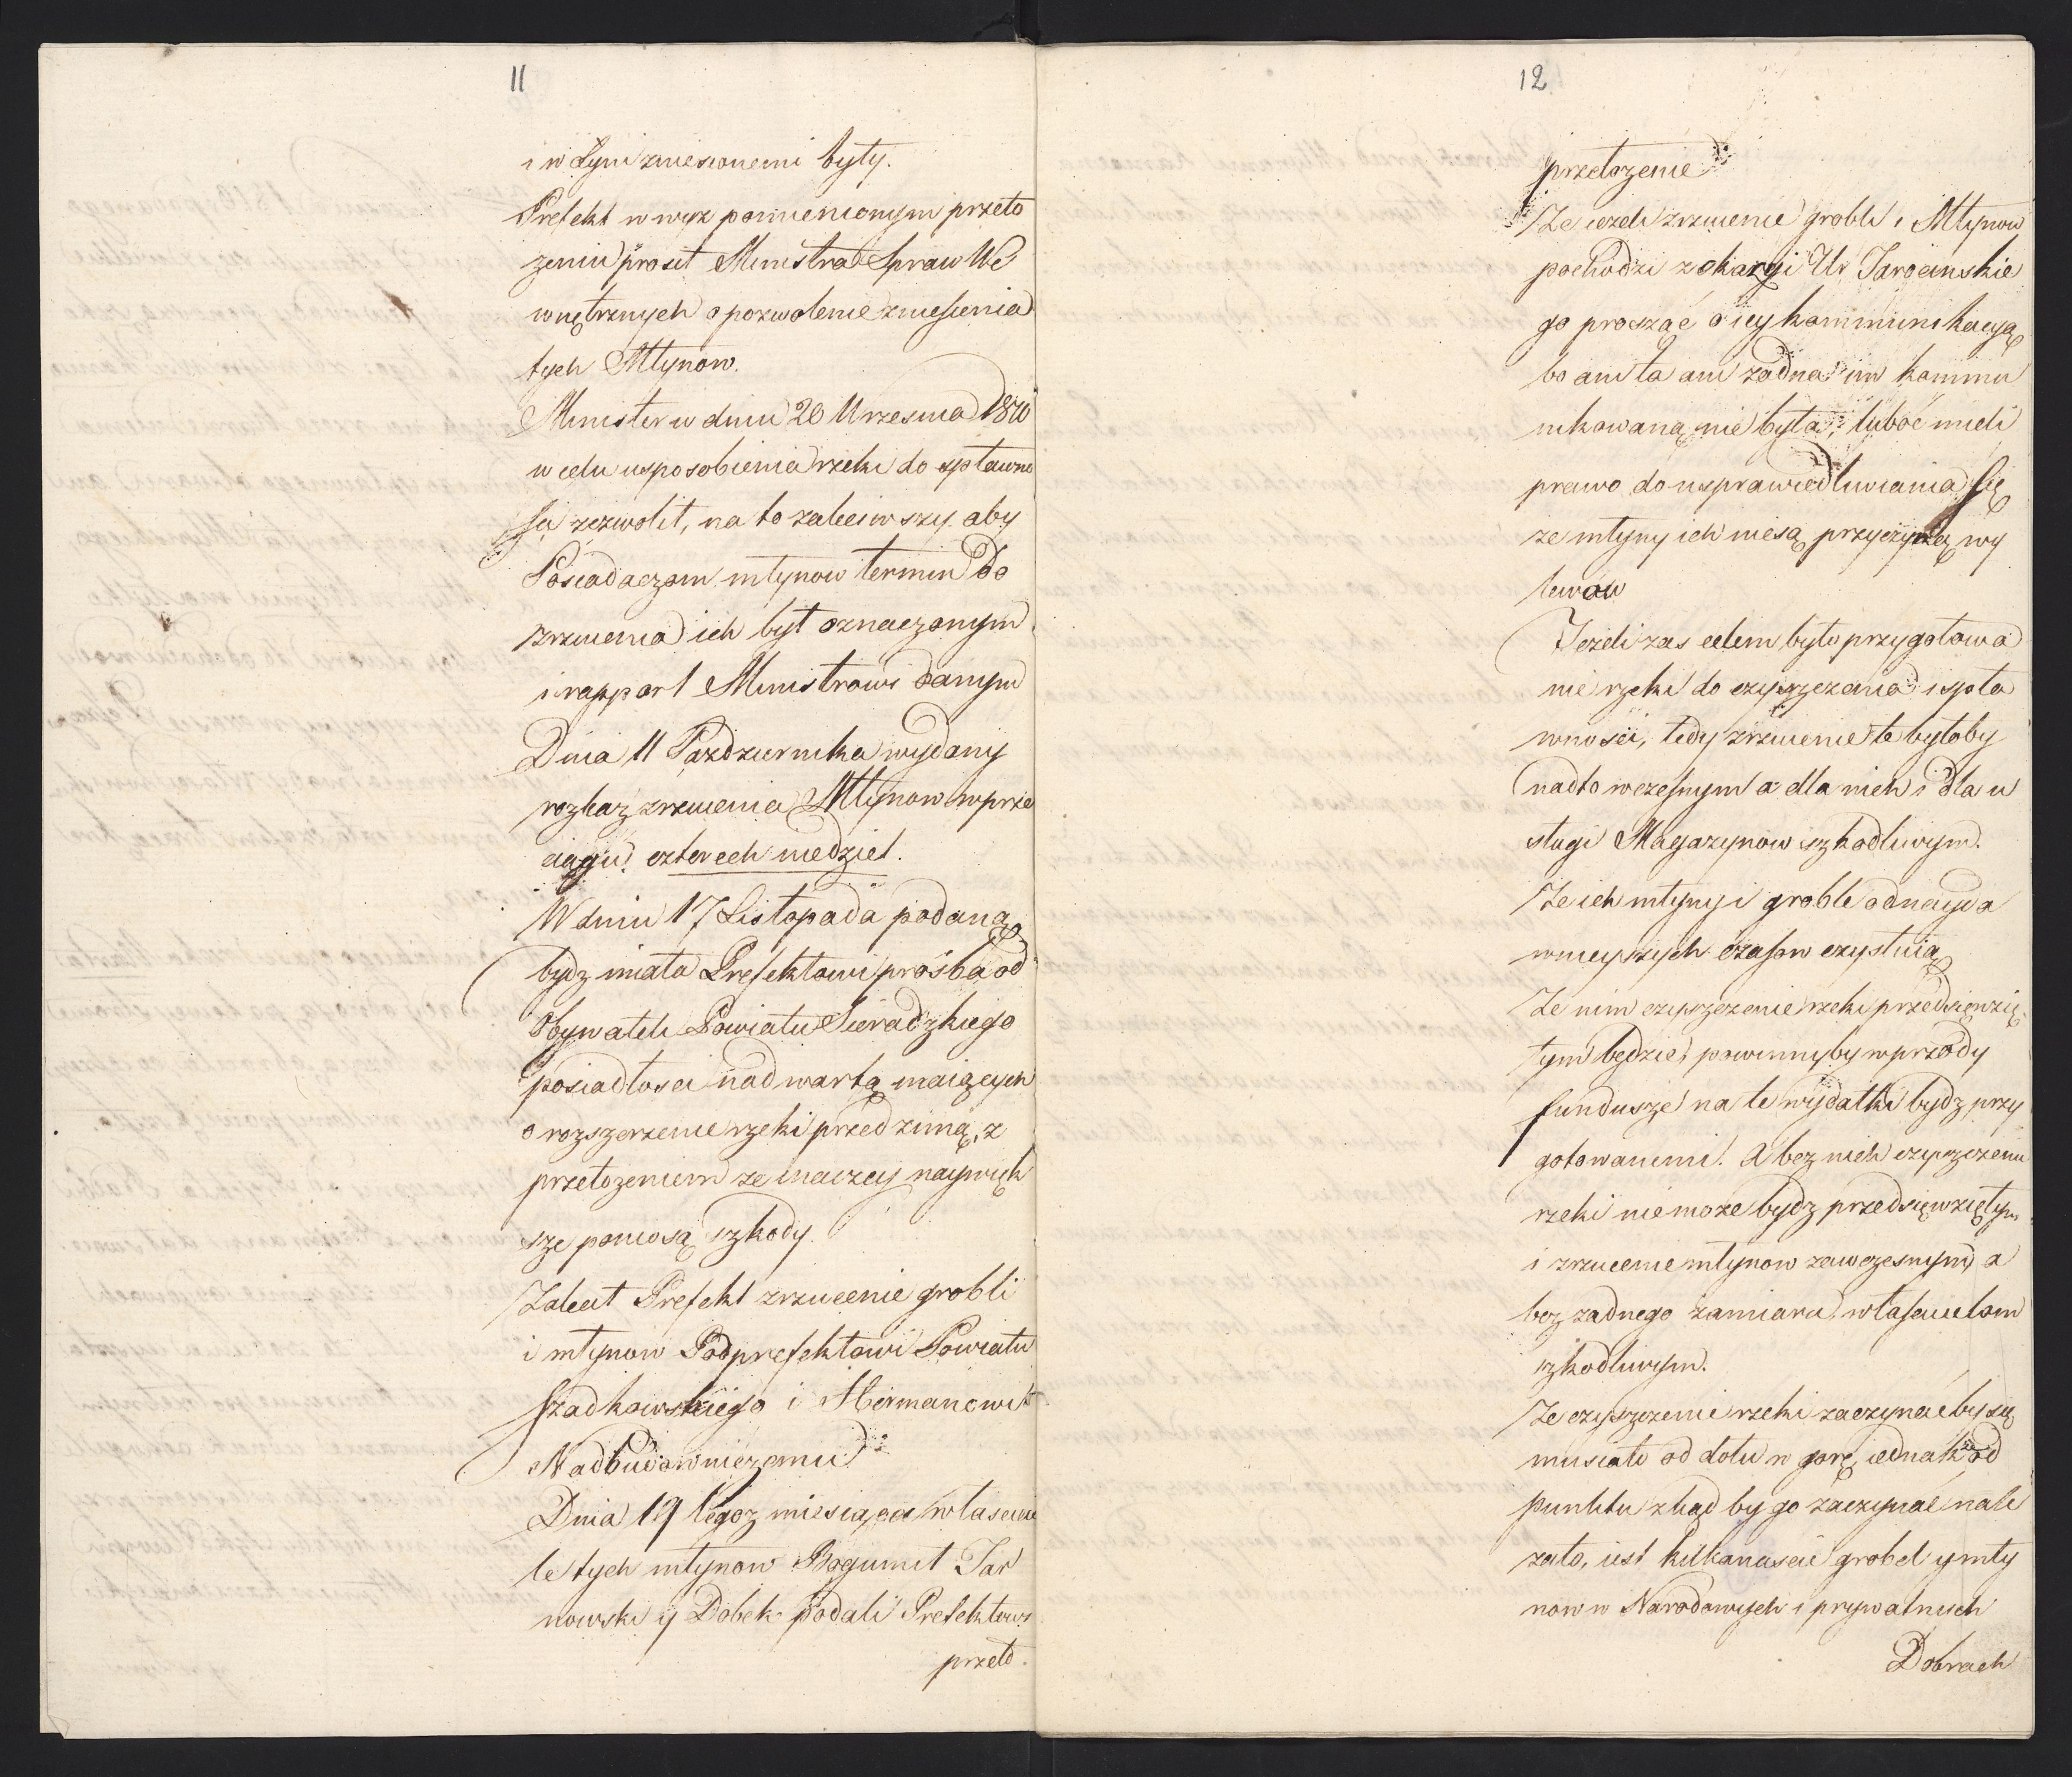 11
i w Łyni zniesionemi były.
Prefekt w wyz pomienionym przeło
zeniu prosił Ministra Spraw We
wnętrznych o pozwolenie zniesienia
tych Młynow.
Minister w dniu 20 Wrzesnia 1810
w celu usposobienia rzeki do spławno
sci zezwolił, na to zaleciwszy aby
Posiadaczom młynow termin do
zrzucenia ich był oznaczonym
i rapport Ministrowi danym
Dnia 11 Pazdziernika wydany
rozkaz zrzucenia Młynow w prze
ciągu czterech niedziel.
W dniu 17 Listopada podaną
bydz miała Prefektowi prośba od
Obywateli Powiatu Sieradzkiego
posiadłosci nad wartą maiących
o rozszerzenie rzeki przed zimą, z
przełozeniem ze inaczey naywięk
sze poniosą szkody.
Zalecił Prefekt zrzucenie grobli
i młynow Podprefektowi Powiatu
Szadkowskiego i Hermanowi
Nadbudowniczemu
Dnia 19 tegoz miesiąca własciciele
le tych młynow Bogumił Jar
nowski y Dobek podali Prefektowi
przeło
12
przełozenie
Ze iezeli zrzucenie grobli i Młynow
pochodzi z okazyi Ur Jarocinskie
go prosząc o iey kommunikacyą
bo ani ta ani zadna im kommu
nikowaną nie była, lubo mieli
prawo do usprawiedliwiania się
ze młyny ich niesą przyczyną wy
lewow
Jezeli zas celem było przygotowa
nie rzeki do czyszczenia i spła
wności, tedy zrzucenie to byłoby
nadto wczesnym a dla nich i dla u
sługi Magazynow szkodliwym.
Ze ich młyny i groble od nayda
wnieyszych czasow exystuią
Ze nim czyszczenie rzeki przedsięwzię
tym będzie, powinnyby wprzody
fundusze na te wydatki bydz przy
gotowanemi. A bez nich czyszczenie
rzeki nie moze bydz przedsięwziętym
i zrzucenie młynow zawczesnym, a
bez zadnego zamiaru, własciecielom
szkodliwym.
Ze czyszczenie rzeki zaczynać by się
musiało od dołu w gorę, iednak od
punktu zkąd by go zaczynać nale
zało, iest kilkanascie grobel y mły
now w Narodowych i prywatnych
Dobrach